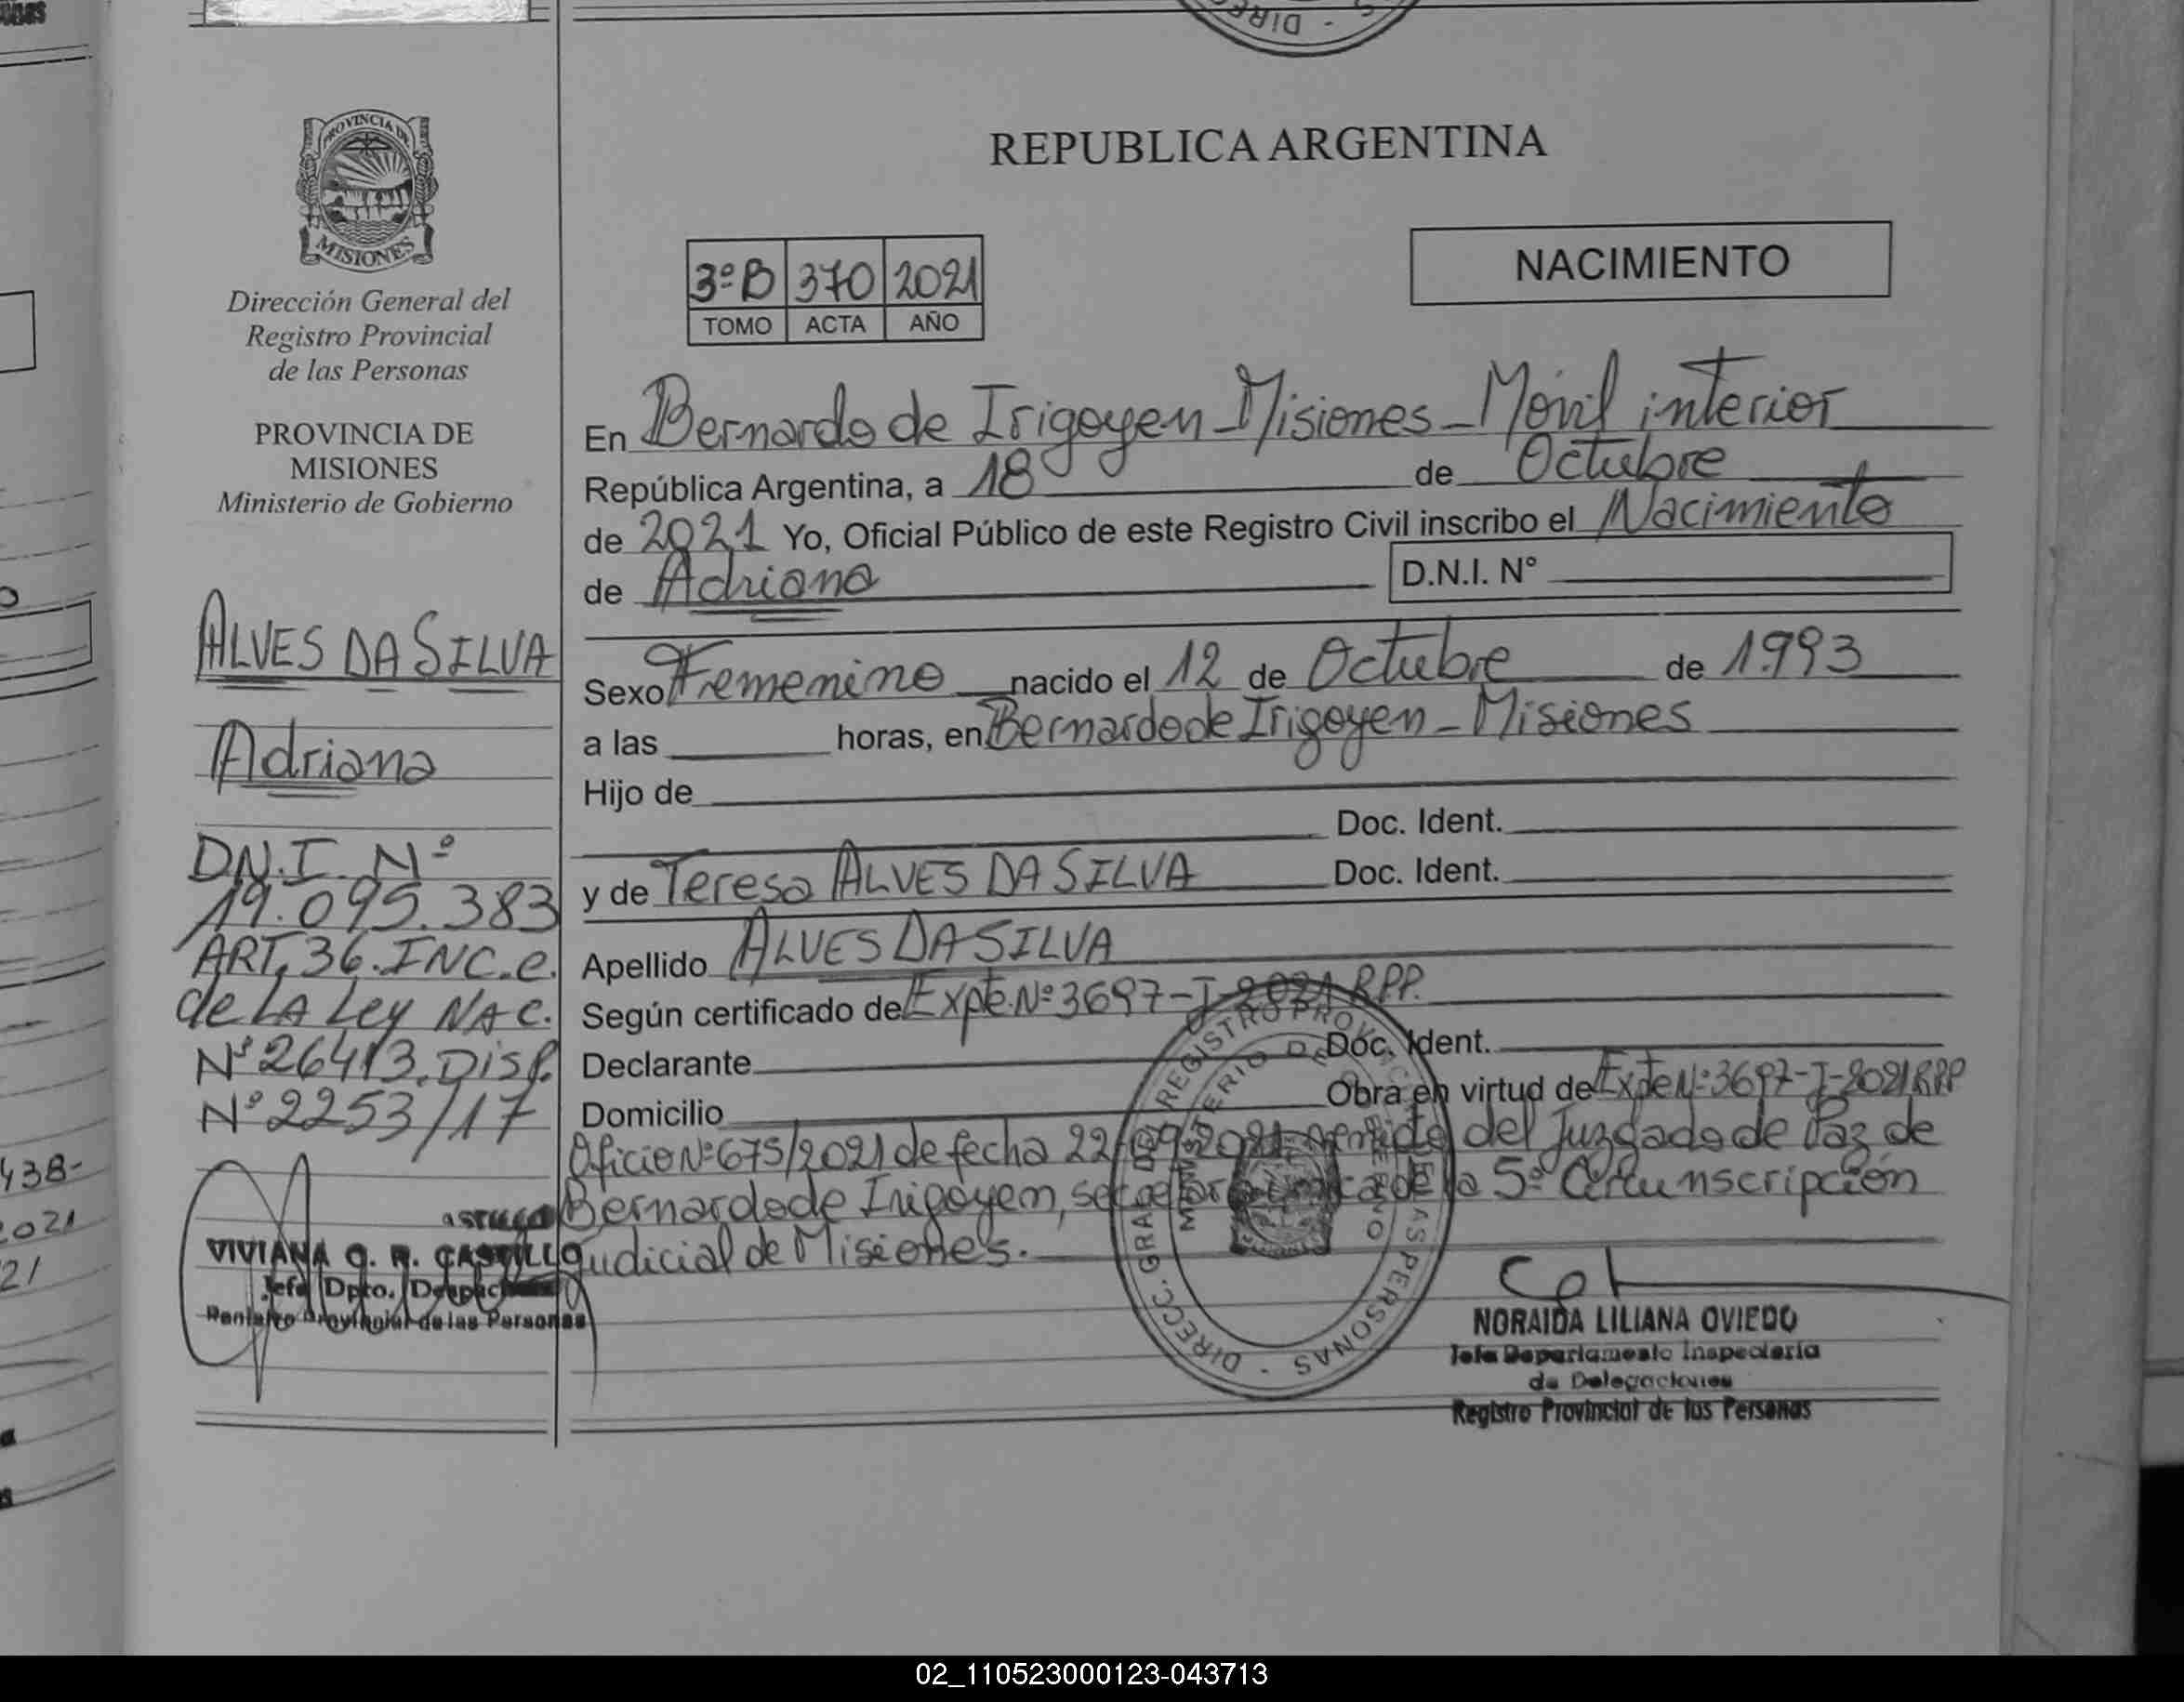 PROVINCIA DE
MISIONES
Dirección General del
Registro Provincial
de las Personas
PROVINCIA DE
MISIONES
Ministerio de Gobierno
ALVES DA SILVA
Adriana
D.N.I. Nº
19.095.383
ART. 36. INC. e.
de LA Ley NAC.
Nº 26413. DISP.
Nº 2253/17
VIVIANA G. R. CASTILLO
Jefa Dpto.
Registro Provincial de las Personas
REPUBLICA ARGENTINA
3º B 370 2021
TOMO ACTA AÑO
NACIMIENTO
En Bernardo de Irigoyen - Misiones - Móvil interior
República Argentina, a 18 de Octubre
de 2021 Yo, Oficial Público de este Registro Civil inscribo el Nacimiento
de Adriana D.N.I. N°
Sexo Femenino nacido el 12 de Octubre de 1.993
a las horas, en Bernardo de Irigoyen - Misiones
Hijo de
Doc. Ident.
y de Teresa ALVES DA SILVA Doc. Ident.
Apellido ALVES DA SILVA
Según certificado de Expte. Nº 3697-J-2021 RPP.
Declarante Doc. Ident.
Domicilio Obra en virtud de Expte Nº 3697-J-2021 RPP
Oficio Nº 675/2021 de fecha 22/09/2021 del Juzgado de Paz de
Bernardo de Irigoyen, de la 5º Circunscripción
Judicial de Misiones.
DIRECC. GRAL. DEL REGISTRO PROVINCIAL DE LAS PERSONAS
MINISTERIO DE GOBIERNO
NORAIDA LILIANA OVIEDO
Jefa Departamento Inspectoría
de Delegaciones
Registro Provincial de las Personas
438-
2021
21
02_110523000123-043713